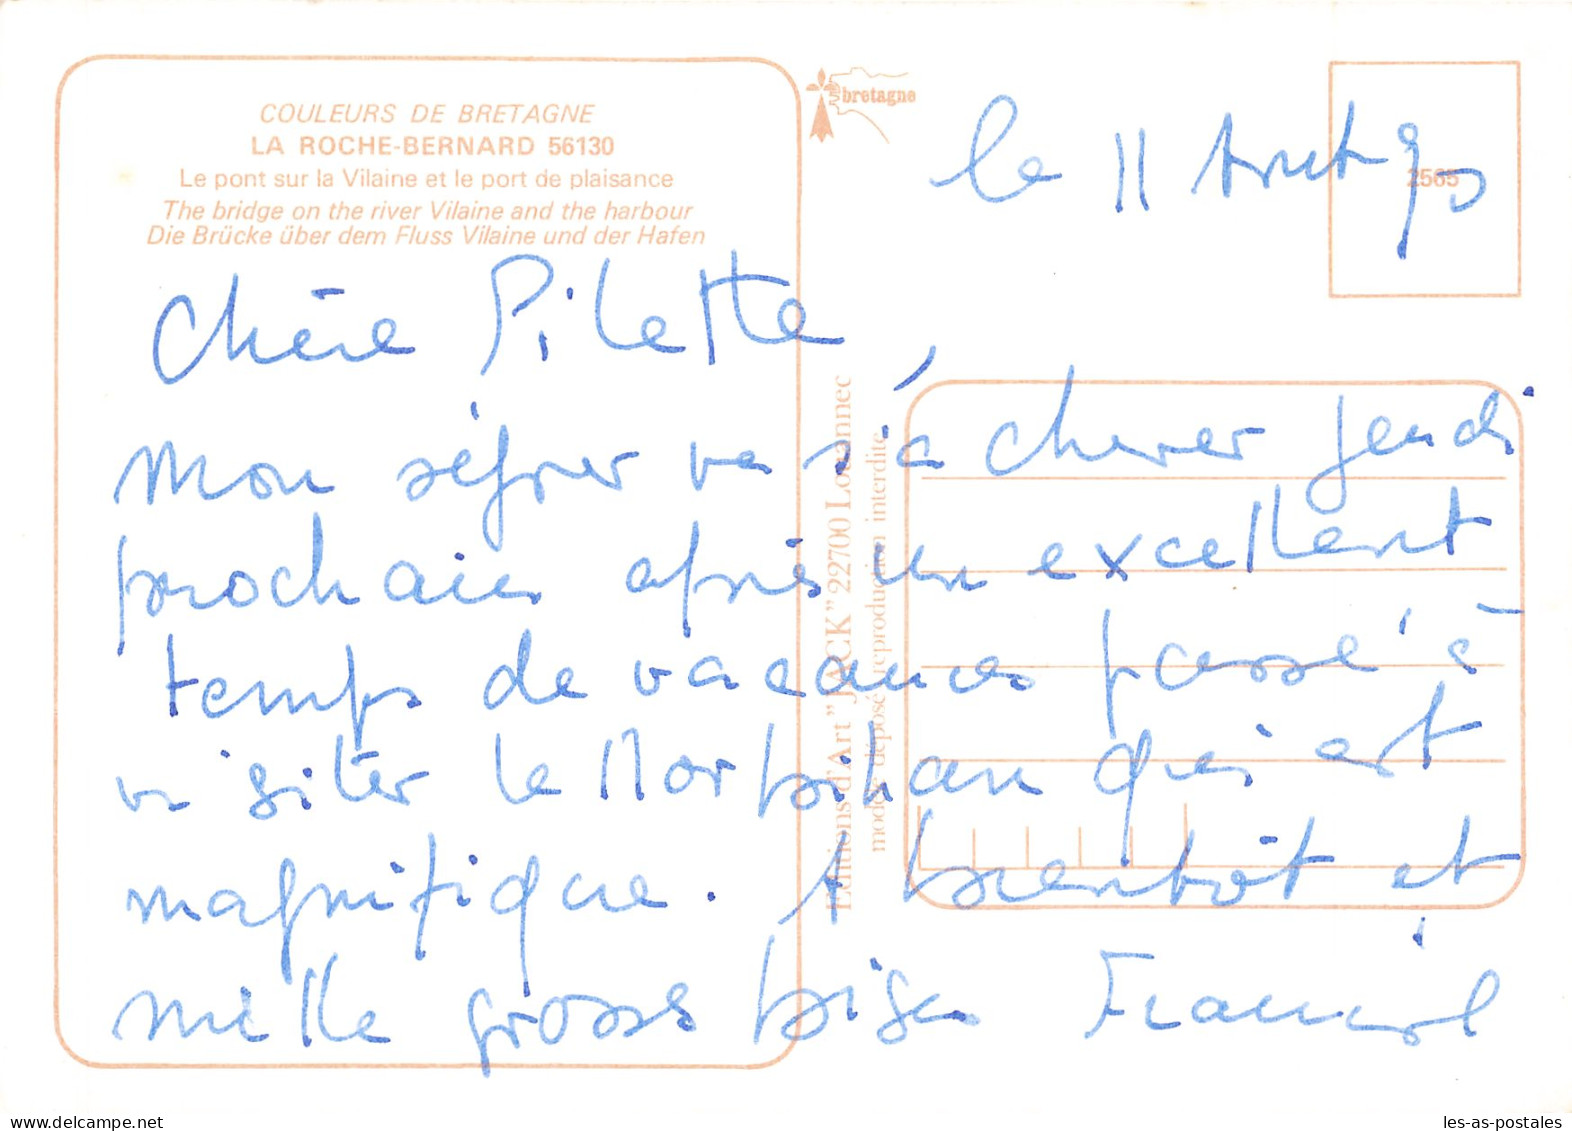 COULEURS DE BRETAGNE
LA ROCHE-BERNARD 56130
Le pont sur la Vilaine et le port de plaisance
The bridge on the river Vilaine and the harbour
Die Brücke über dem Fluss Vilaine und der Hafen
bretagne
2565
le 11 Août 90
Chère Pilette,
mon séjour va s'achever jeudi
prochain après un excellent
temps de vacances passé à
visiter le Morbihan qui est
magnifique. A bientôt et
mille grosses bises
Editions d'Art "JACK" 22700 Louannec
modèle déposé reproduction interdite
les-as-postales